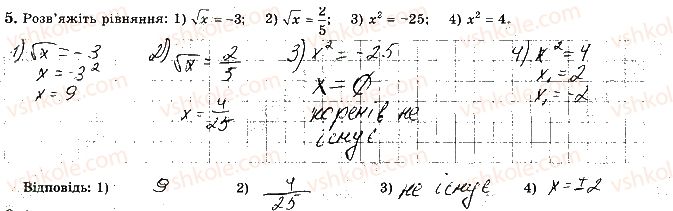 5. Розв'яжіть рівняння: 1) √x = -3; 2) √x = 2/5; 3) x² = -25; 4) x² = 4.
1) √x = -3
x = -3²
x = 9
2) √x = 2/5
x = 4/25
3) x² = -25
x = ∅
коренів не
існує
4) x² = 4
x₁ = 2
x₁ = -2
Відповідь: 1) 9 2) 4/25 3) не існує 4) x = ±2